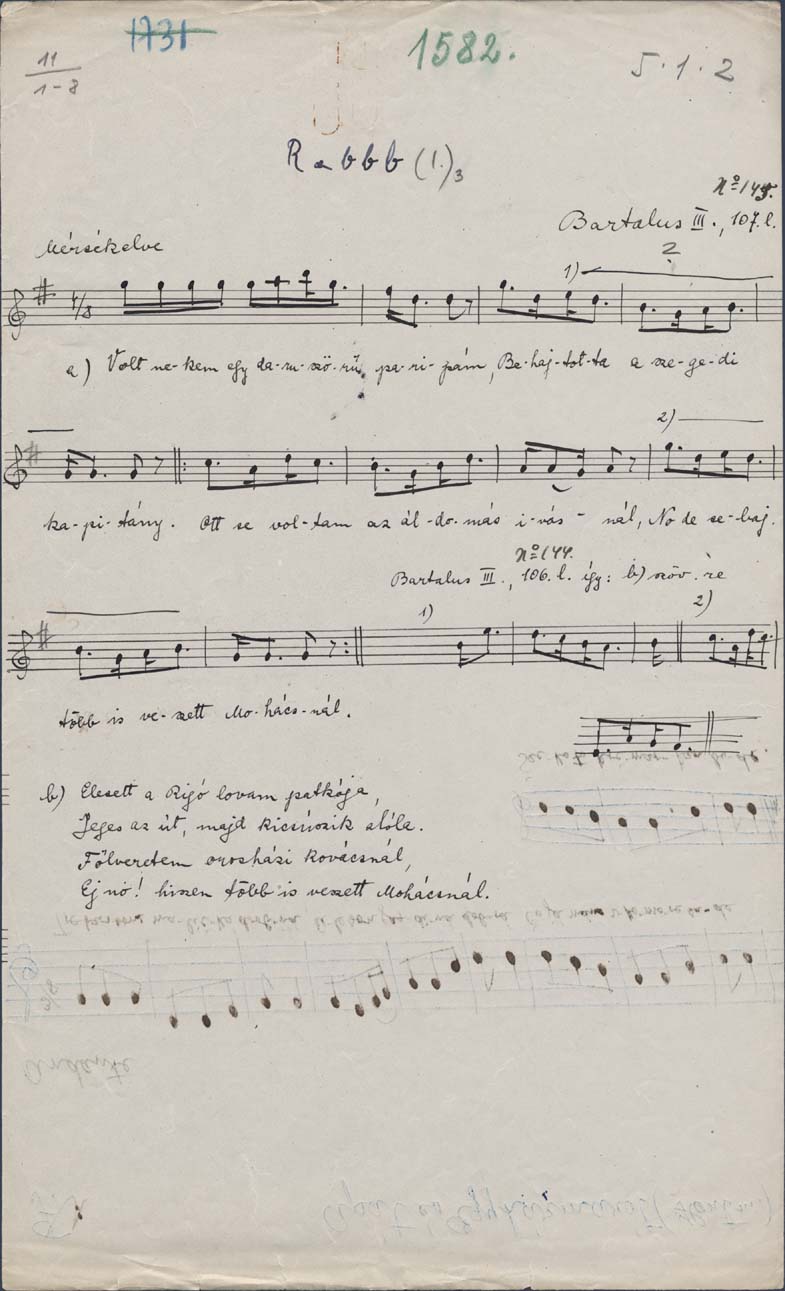 1731
1582.
11
1-8
5·1·2
R a b b b (1.)3
Nº 145.
Bartalus III., 107. l.
2
Mérsékelve
4/8
1)
a) Volt ne-kem egy da-ru-szö-rű pa-ri-pám, Be-haj-tot-ta a sze-ge-di
2)
ka-pi-tány. Ott se vol-tam az ál-do-más i-vás-nál, No de se-baj.
Nº 144.
Bartalus III., 106. l. így: b) szöv.re
1)
2)
több is ve-szett Mo-hács-nál.
b) Elesett a Rigó lovam patkója,
Jeges az út, majd kicsúszik alóla.
Fölveretem orosházi kovácsnál,
Ej nó! hiszen több is veszett Mohácsnál.
Andante